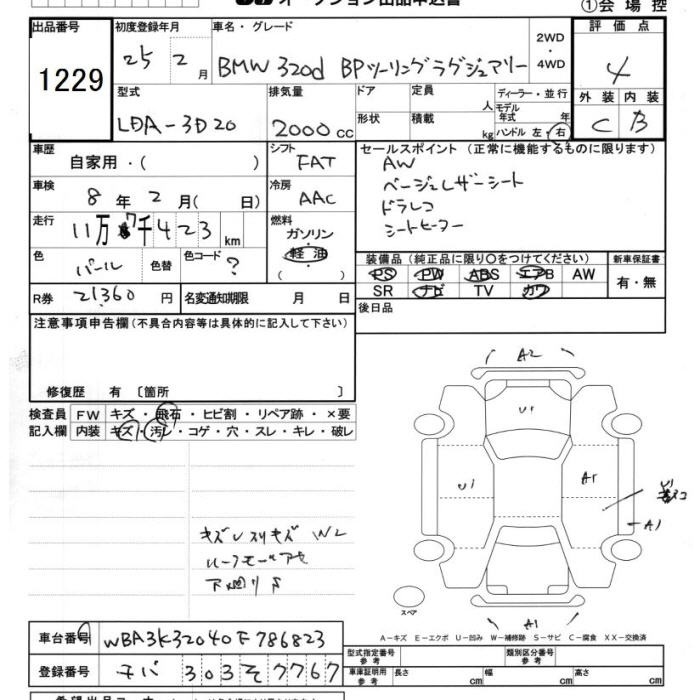 オークション出品申込書
①会場控
出品番号
1229
初度登録年月
25 2月
車名・グレード
BMW 320d BPツーリングラグジュアリー
2WD
・
4WD
評価点
4
外装 内装
C B
型式
LDA-3D20
排気量
2000cc
ドア
形状
定員 人
積載 kg
ディーラー・並行
モデル年式 年
ハンドル 左・右
車歴
自家用・( )
シフト
FAT
車検
8年2月( 日)
冷房
AAC
走行
11万7千423km
燃料
ガソリン
軽油
( )
色
パール
色替
色コード
?
R券
21360円
名変通知期限 月 日
セールスポイント (正常に機能するものに限ります)
AW
ベージュレザーシート
ドラレコ
シートヒーター
装備品 (純正品に限り○をつけてください)
PS PW ABS エアB AW
SR ナビ TV カワ
新車保証書
有・無
後日品
注意事項申告欄 (不具合内容等は具体的に記入して下さい)
修復歴 有 〔箇所 〕
検査員
記入欄
FW キズ・飛石・ヒビ割・リペア跡・×要
内装 キズ・汚レ・コゲ・穴・スレ・キレ・破レ
キズU スリキズ WL
ルーフモールアセ
下廻りS
A2
U1
U1
A1
A1
A1
スペア
A-キズ E-エクボ U-凹み W-補修跡 S-サビ C-腐食 XX-交換済
車台番号
WBA3K32040F786823
登録番号
チバ 303 そ 7767
型式指定番号
参考
類別区分番号
参考
車庫証明用
参考
長さ cm
幅 cm
高さ cm